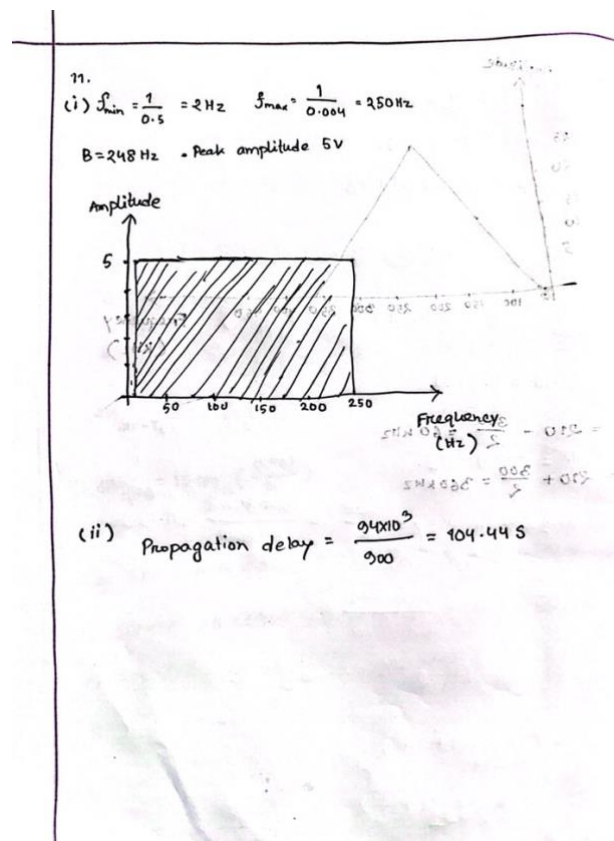 11.
(i) f_min = 1/0.5 = 2 Hz f_max = 1/0.004 = 250 Hz
B = 248 Hz . Peak amplitude 5V
Amplitude
5
50 100 150 200 250
Frequency
(Hz)
(ii) Propagation delay = 94×10³/900 = 104.44 S